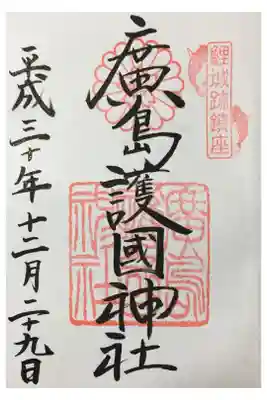 鯉城跡鎮座
廣島護國神社
平成三十年十二月二十九日